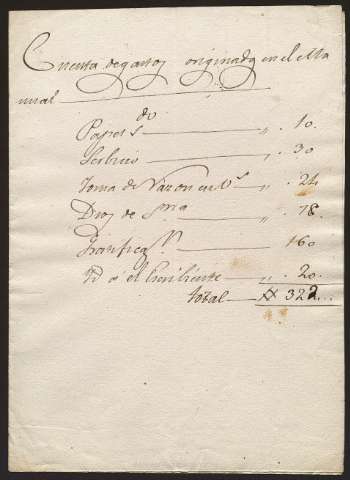 Cuenta de gastos originados en el Ma
nual
Papel sdo 10.
30
Toma de Razon en 24
Dros de 78.
Gratificaon 160
Yd a el Escriviente 20.
total 322